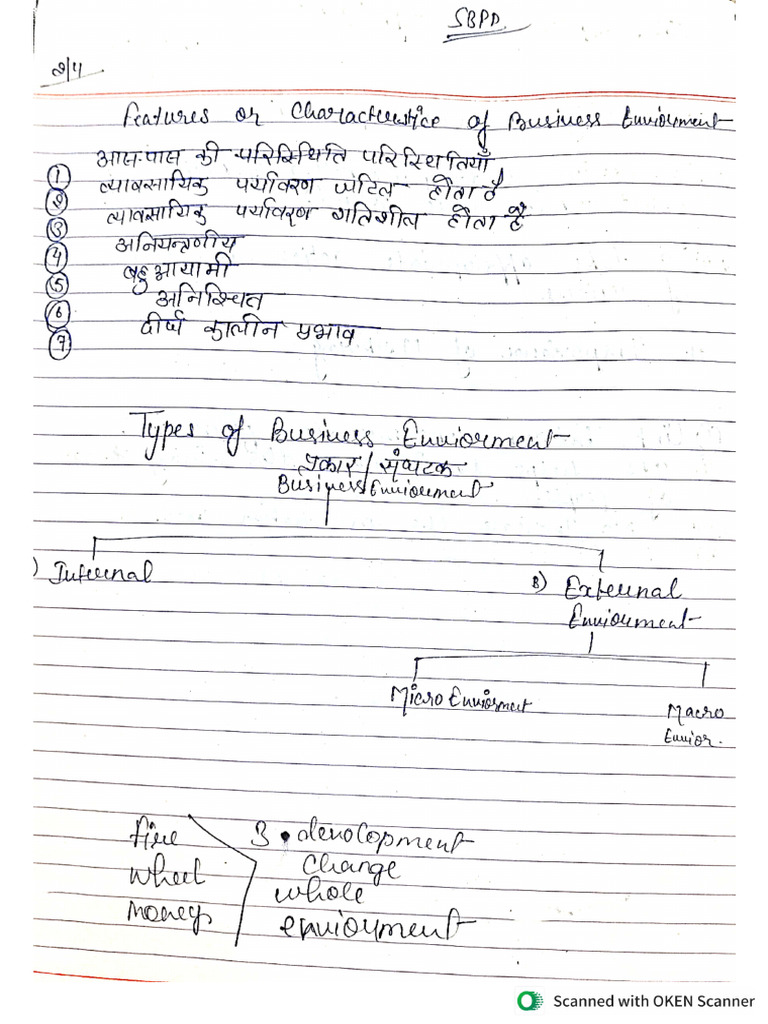 SBPD
2/4
Features or Charactteristice of Business Enviorment
① आस-पास की परिस्थिति परिस्थतियाँ
② व्यावसायिक पर्यावरण जटिल होता है
③ व्यावसायिक पर्यावरण गतिशील होता है
④ अनियन्त्रणीय
⑤ बहु आयामी
⑥ अनिश्चित
⑦ दीर्घ कालीन प्रभाव
Types of Business Enviorment
प्रकार / संघटक
Business Enviourment
) Internal
B) External
Enviourment
Micro Enviorment
Macro
Envior.
fire 3 • devolopment
wheel Change
money whole
enviorment
Scanned with OKEN Scanner